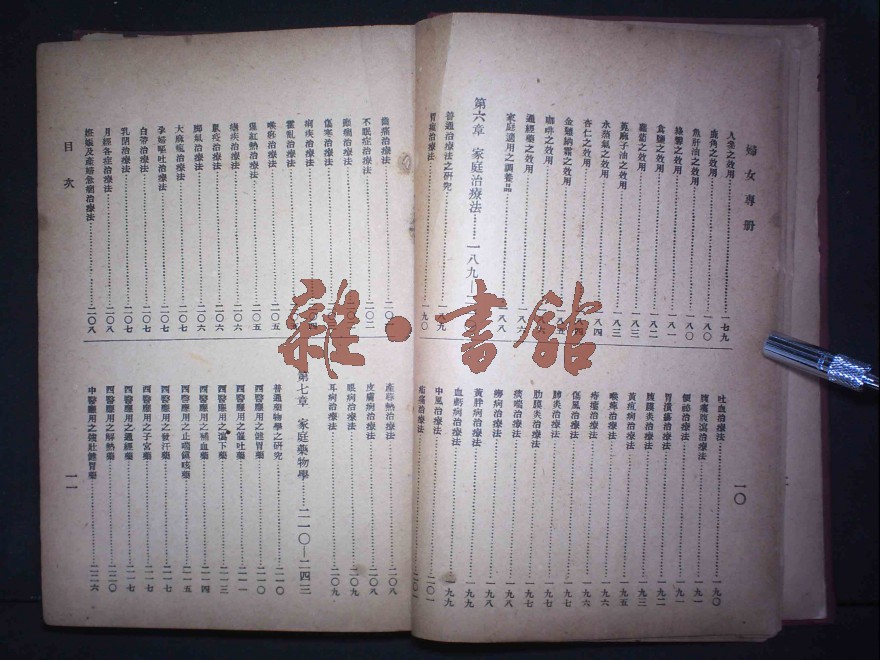 婦女專册
一〇
人參之效用……一七九
鹿角之效用……一八〇
魚肝油之效用……一八〇
綠礬之效用……一八一
食鹽之效用……一八二
蘑菇之效用……一八二
蓖麻子油之效用……一八三
水蒸氣之效用……一八四
杏仁之效用……一八四
金雞納霜之效用……一八五
咖啡之效用……
通經藥之效用……一八六
家庭適用之調養品……一八八
第六章 家庭治療法……一八九—
普通治療法之研究……一八九
胃痛治療法……一九〇
吐血治療法……一九〇
腹痛腹瀉治療法……一九一
便祕治療法……一九一
胃潰瘍治療法……一九二
腹膜炎治療法……一九三
黃疸病治療法……一九四
喉痺治療法……一九五
痔瘡治療法……一九六
傷風治療法……一九六
肺炎治療法……一九七
肋膜炎治療法……一九七
痰喘治療法……一九八
癆病治療法……一九八
黃胖病治療法……一九九
血虧病治療法……一九九
中風治療法……二〇一
頭痛治療法
目次
一一
齒痛治療法
不眠症治療法……二〇二
癲癇治療法
傷寒治療法
痢疾治療法
霍亂治療法
喉痧治療法……二〇五
猩紅熱治療法……二〇五
瘧疾治療法……二〇六
鼠疫治療法……二〇六
腳氣治療法……二〇六
大麻瘋治療法……二〇七
孕婦嘔吐治療法……二〇七
白帶治療法……二〇七
乳閉治療法……二〇七
月經各症治療法……二〇八
姙娠及產婦急病治療法……二〇八
產褥熱治療法……二〇八
皮膚病治療法……二〇八
眼病治療法……二〇九
耳病治療法……二〇九
第七章 家庭藥物學……二一〇—二四三
普通藥物學之研究……二一〇
西醫應用之健胃藥……二一〇
西醫應用之催吐藥……二一一
西醫應用之瀉下藥……二一三
西醫應用之補血藥……二一四
西醫應用之止喘鎮咳藥……二一五
西醫應用之發汗藥……二一七
西醫應用之子宮藥……二一七
西醫應用之通經藥……二一七
西醫應用之解熱藥……二二〇
中醫應用之強壯健胃藥……二二六
雜·書館